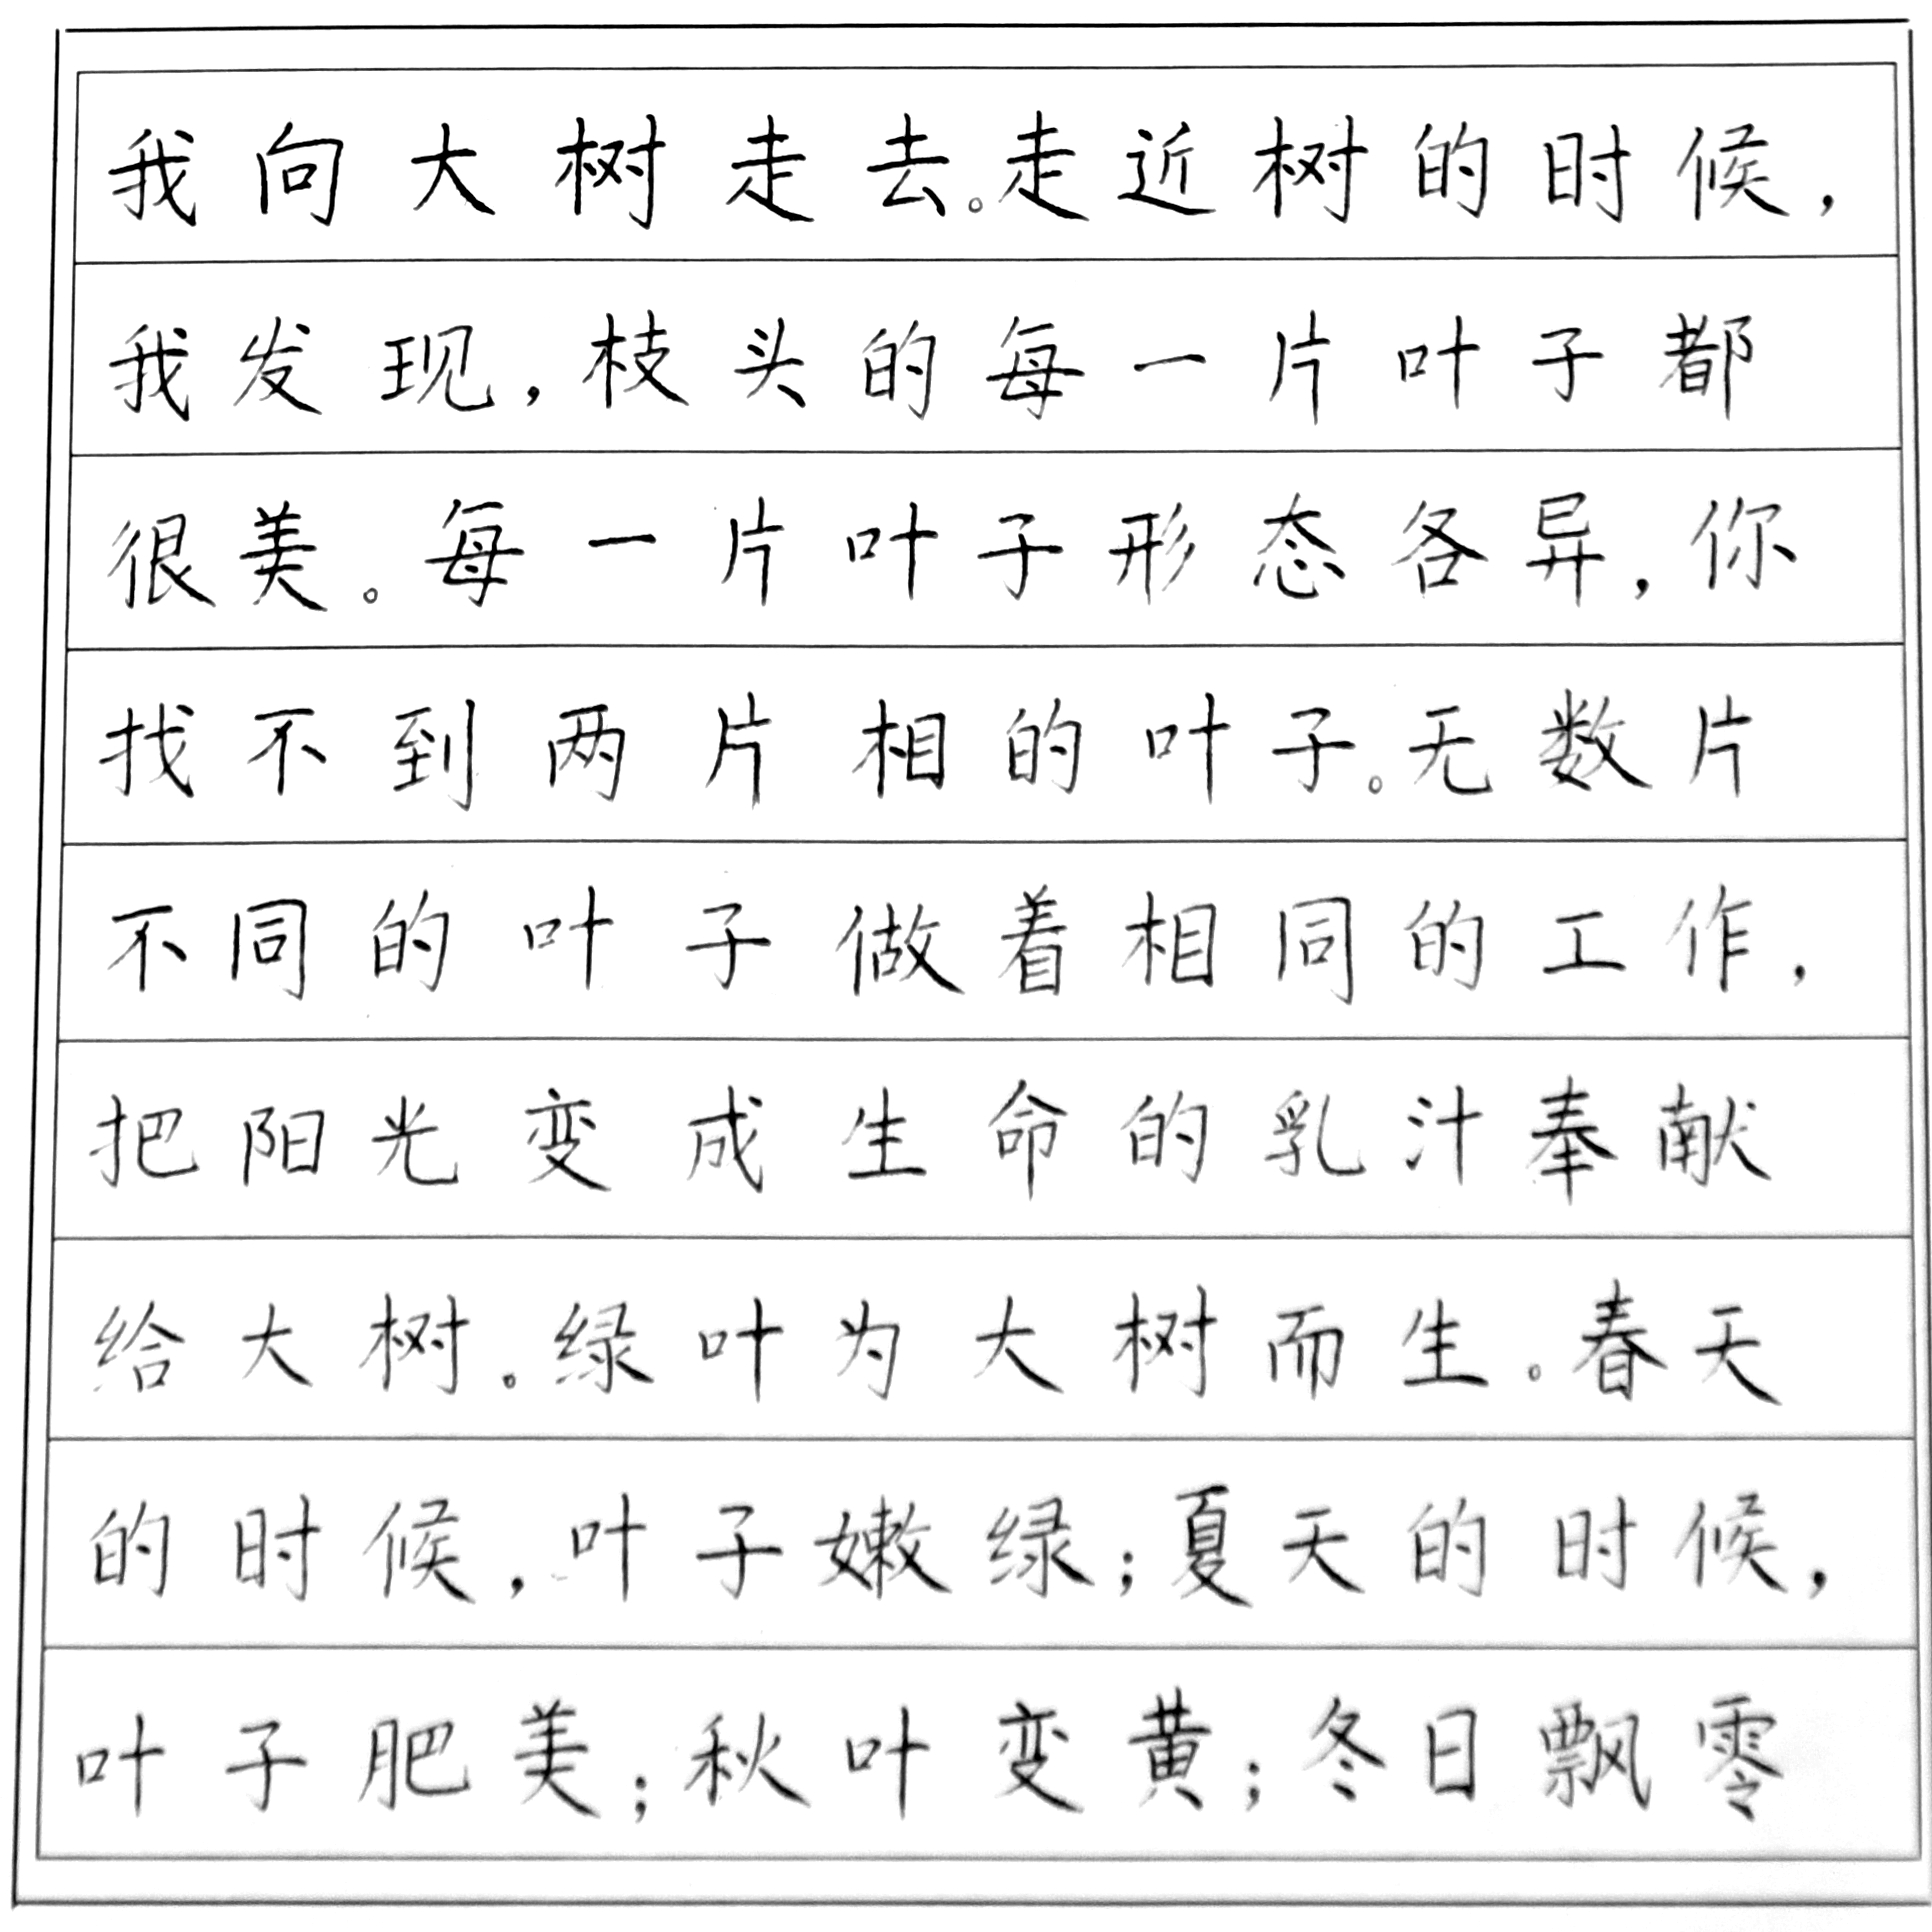 我向大树走去。走近树的时候，
我发现，枝头的每一片叶子都
很美。每一片叶子形态各异，你
找不到两片相的叶子。无数片
不同的叶子做着相同的工作，
把阳光变成生命的乳汁奉献
给大树。绿叶为大树而生。春天
的时候，叶子嫩绿；夏天的时候，
叶子肥美；秋叶变黄；冬日飘零